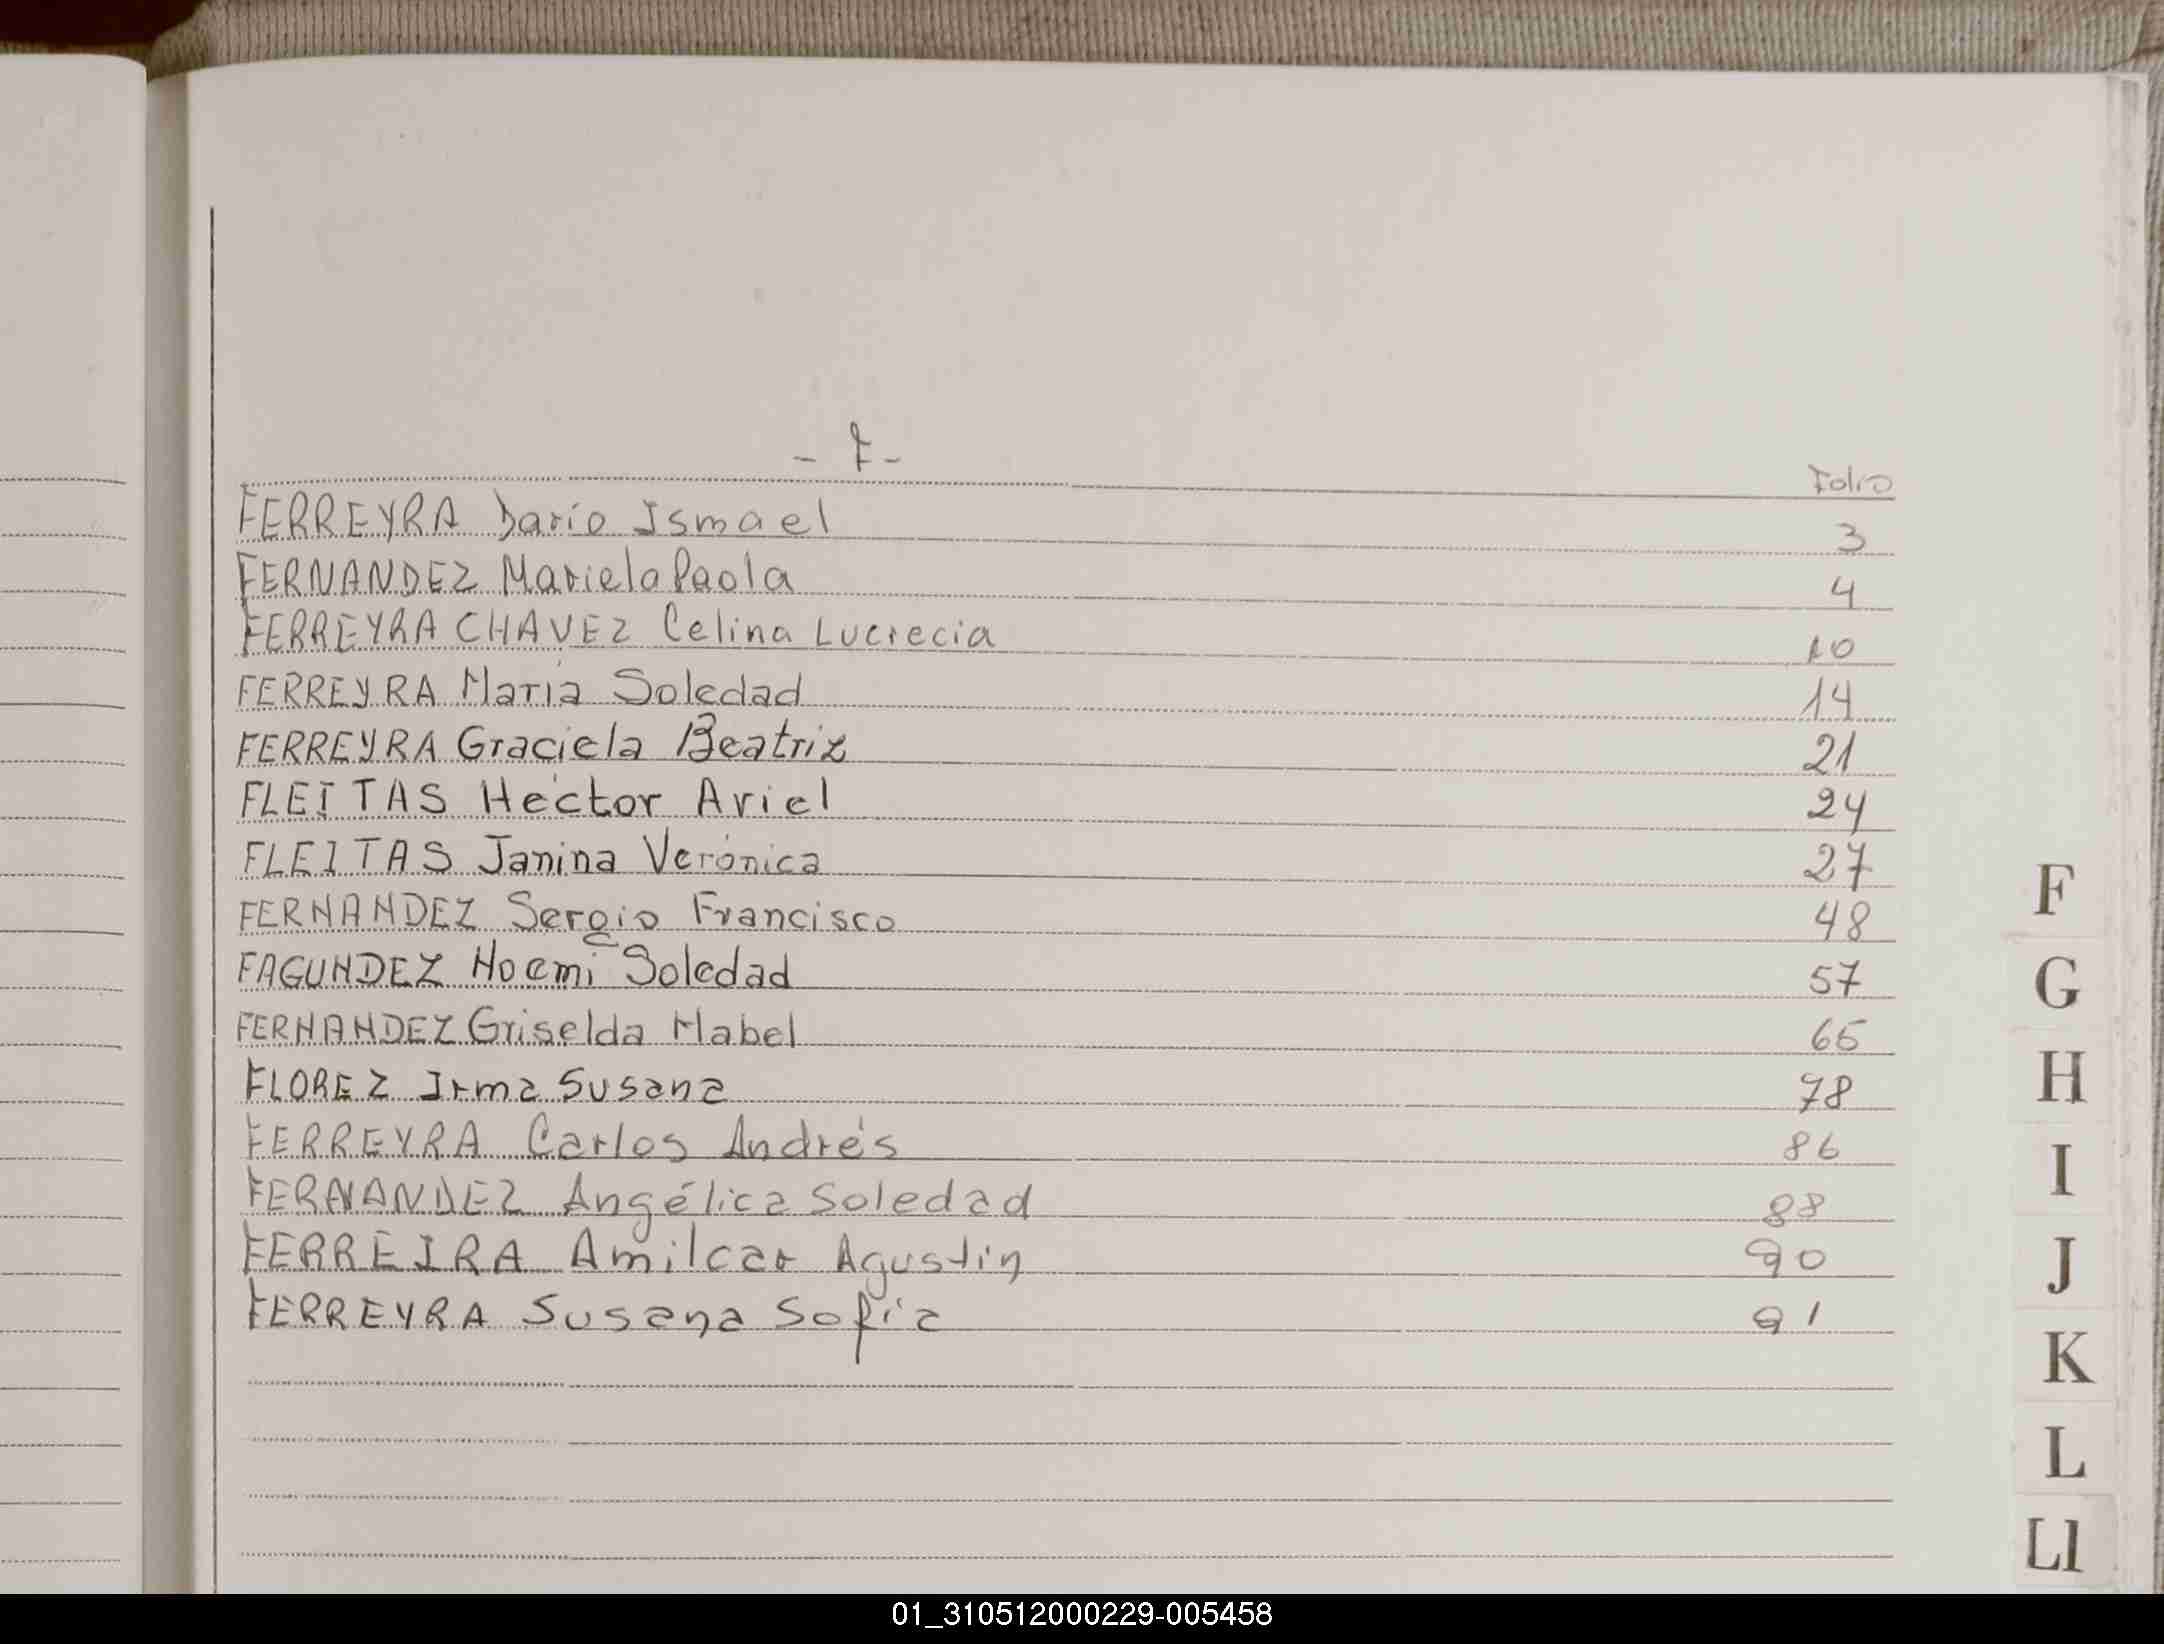 - F -
Folio
FERREYRA Darío Ismael 3
FERNANDEZ Mariela Paola 4
FERREYRA CHAVEZ Celina Lucrecia 10
FERREYRA María Soledad 14
FERREYRA Graciela Beatriz 21
FLEITAS Héctor Ariel 24
FLEITAS Janina Verónica 27
FERNANDEZ Sergio Francisco 48
FAGUNDEZ Noemí Soledad 57
FERNANDEZ Griselda Mabel 65
FLOREZ Irma Susana 78
FERREYRA Carlos Andrés 86
FERNANDEZ Angélica Soledad 88
FERREIRA Amilcar Agustín 90
FERREYRA Susana Sofía 91
F
G
H
I
J
K
L
Ll
01_310512000229-005458